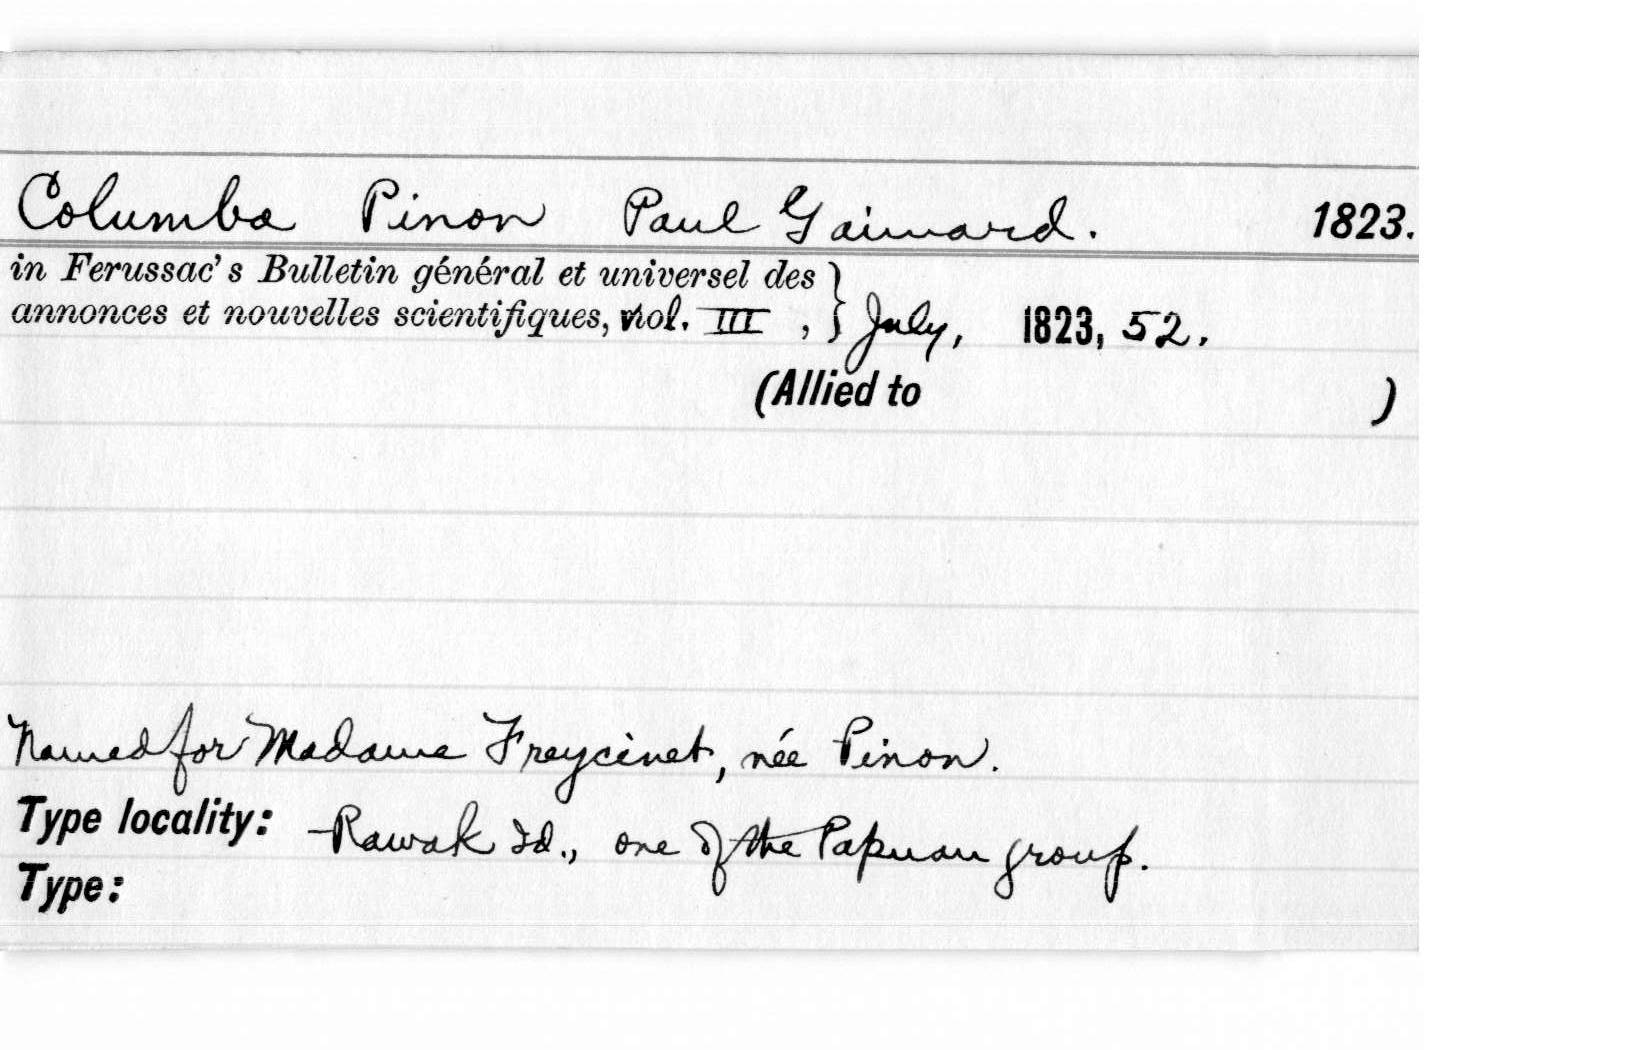 Columba Pinon Paul Gaimard. 1823.
in Ferussac's Bulletin général et universel des
annonces et nouvelles scientifiques, vol. III, } July, 1823, 52.
(Allied to )
Named for Madame Freycinet, née Pinon.
Type locality: Rawak Id., one of the Papuan group.
Type: